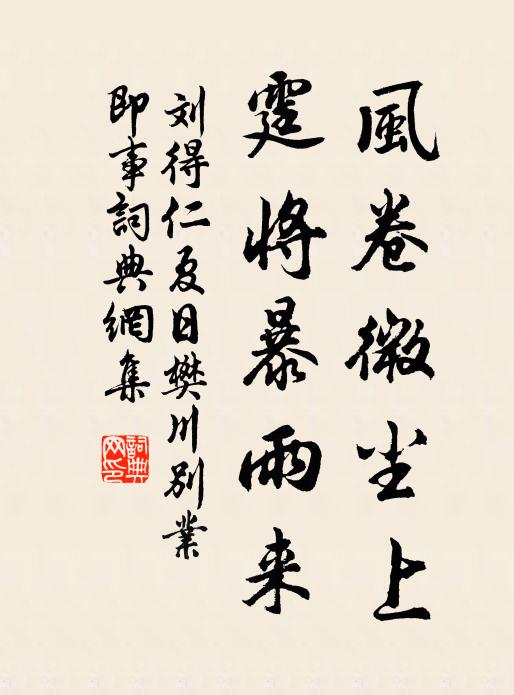 風卷微尘上
霆将暴雨来
刘得仁夏日樊川别業
即事詞典網集
詞典网印